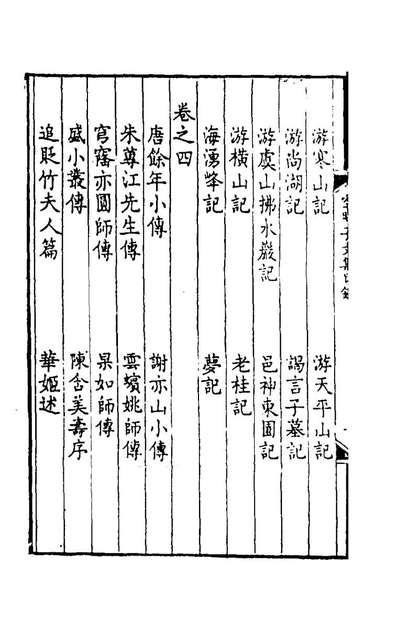 游寒山記　游天平山記
游尚湖記　謁言子墓記
游虞山拂水巖記　邑神東圃記
游橫山記　老桂記
海湧峰記　夢記
卷之四
唐餘年小傳　謝亦山小傳
朱尊江先生傳　雲璸姚師傳
穹窿亦圓師傳　杲如師傳
盛小叢傳　陳含美壽序
追貶竹夫人篇　華姬述